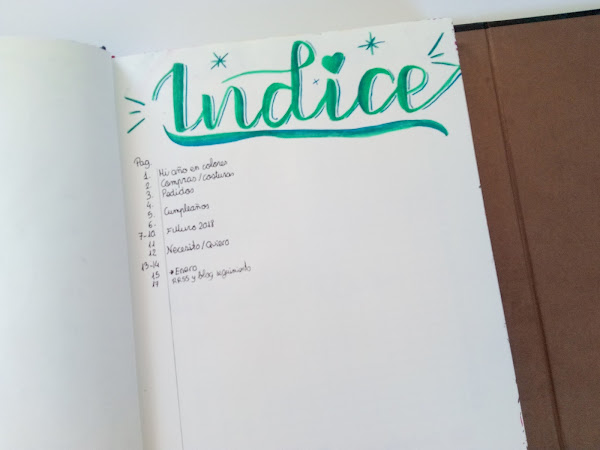 Indice
Pag.
1. Mi año en colores
2. Compras/costuras
3. Pedidos
4.
5. Cumpleaños
6.
7-10 Futuro 2018
11
12 Necesito/Quiero
13-14
15 *Enero
17 RRSS y blog seguimiento